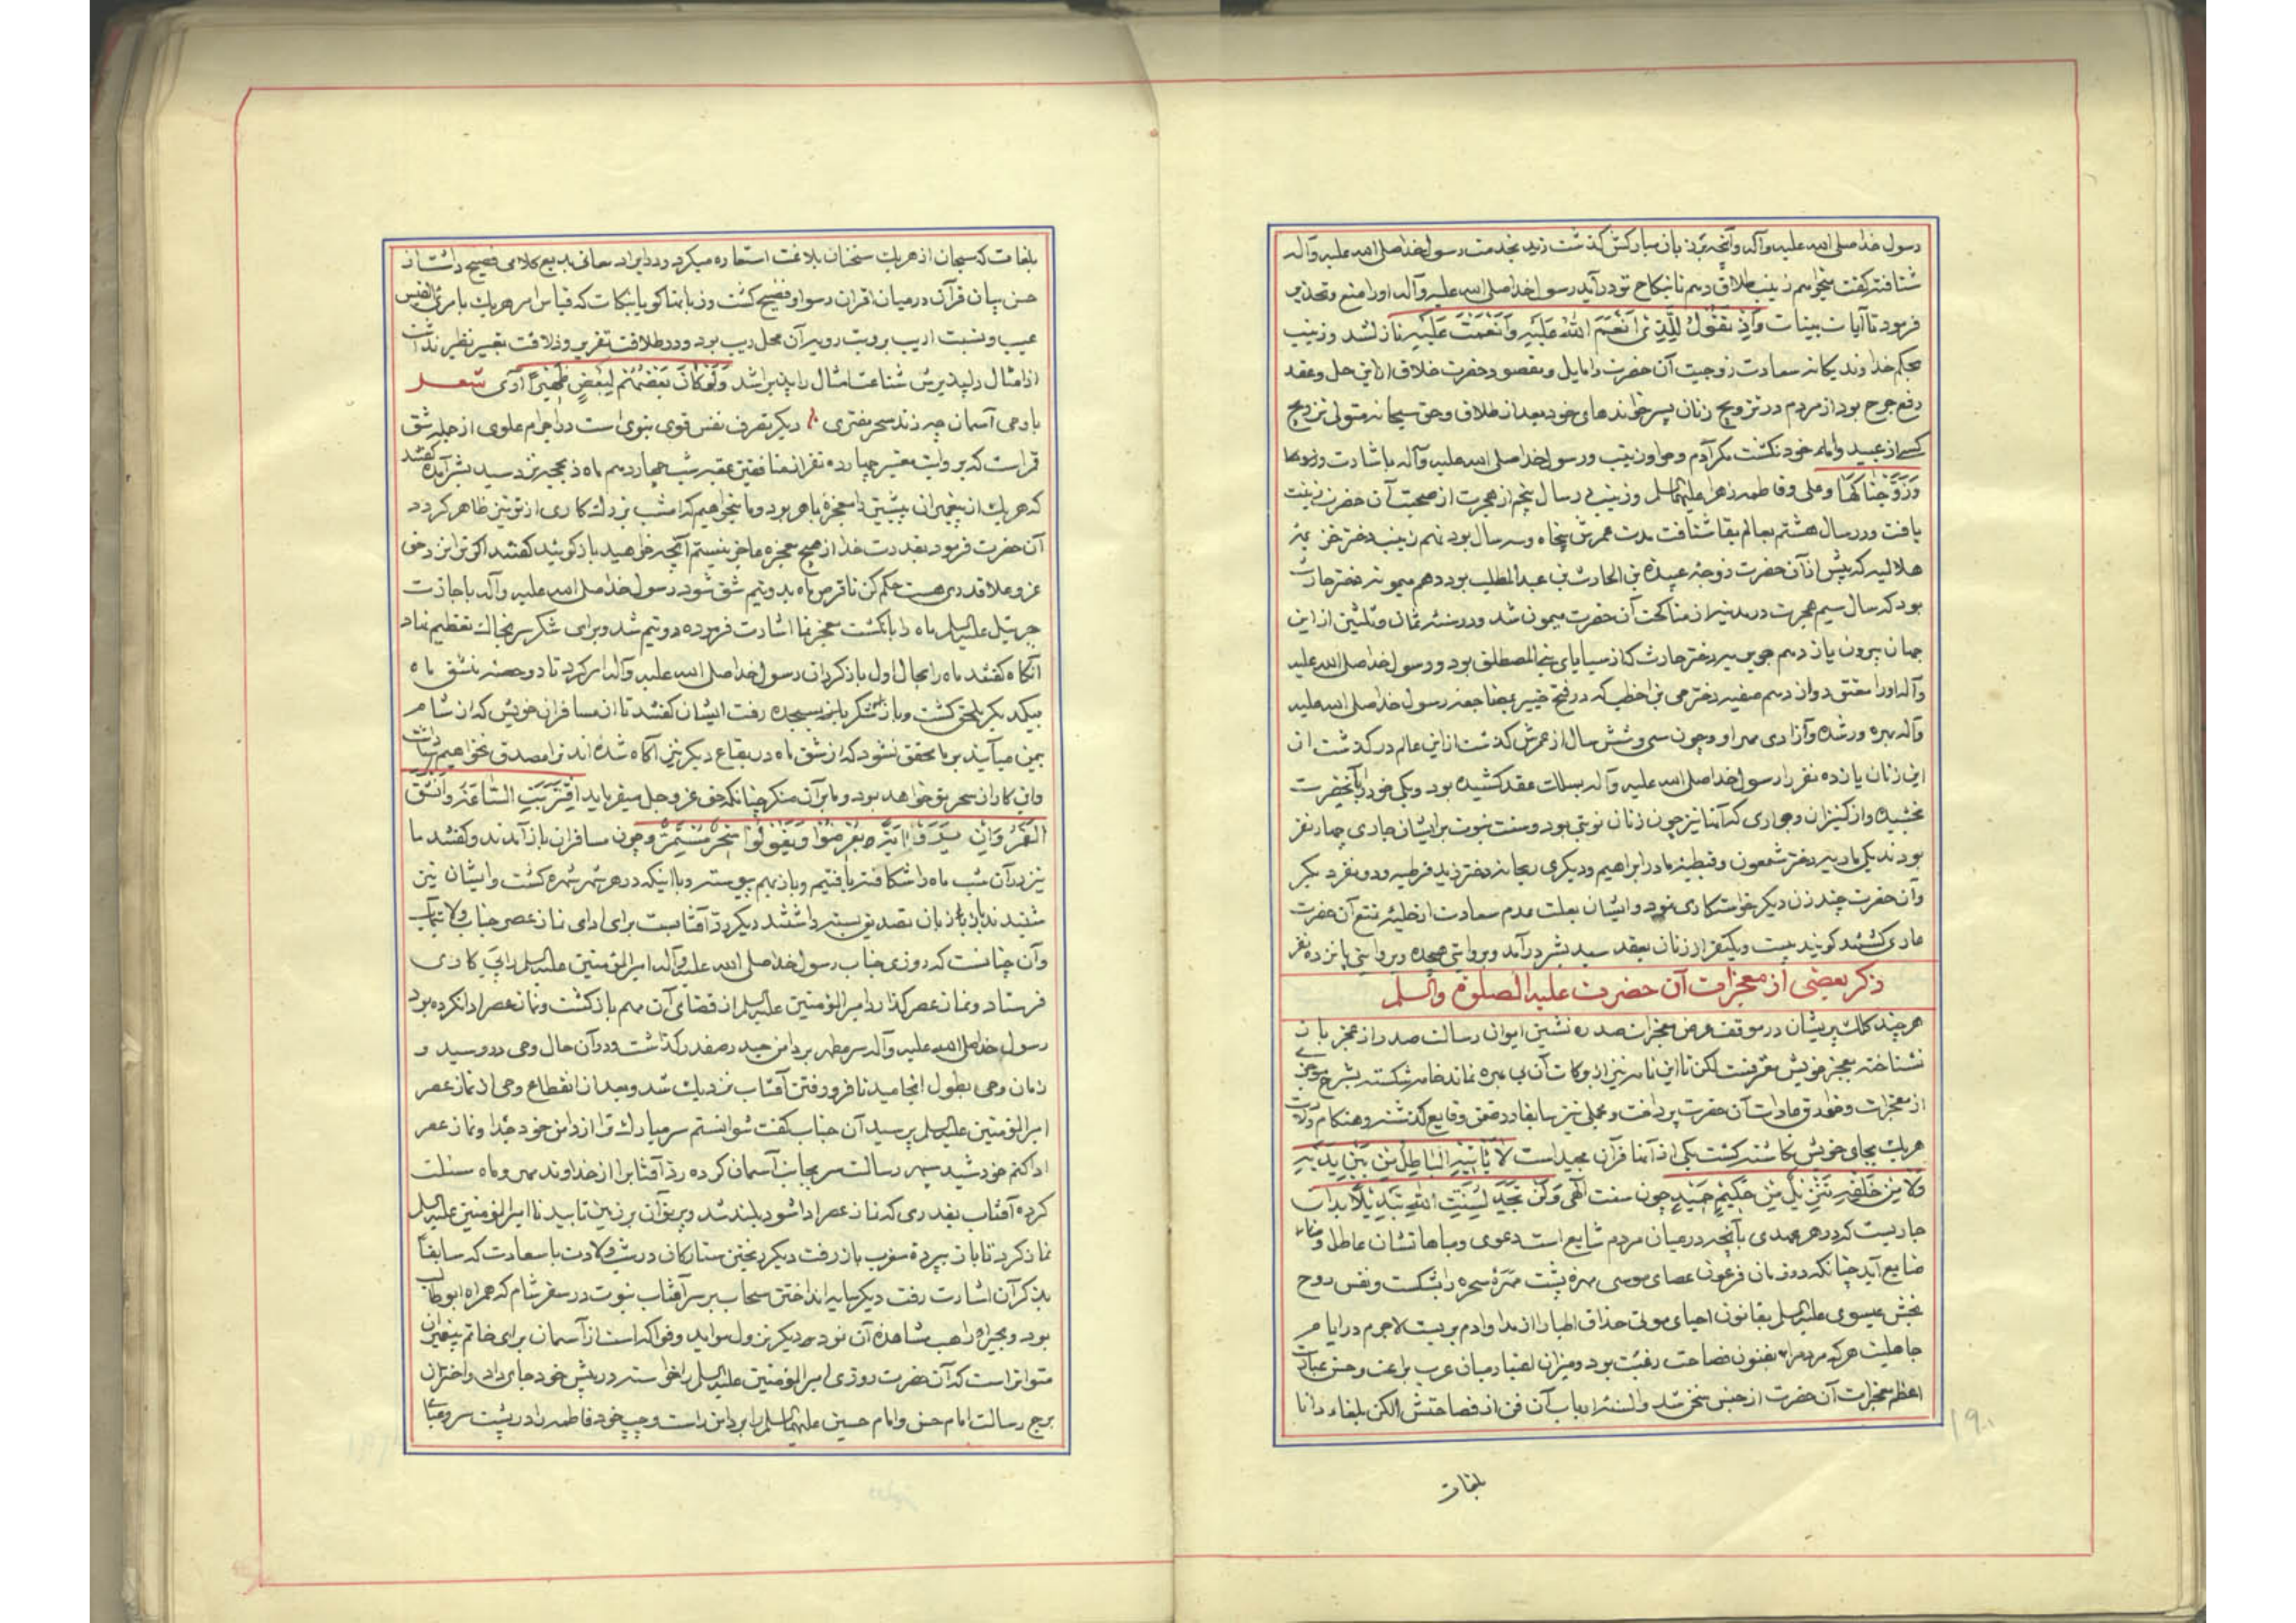 رسول خدا صلی الله علیه وآله وآنچه بر زبان مبارکش گذشت زید بخدمت رسول خدا صلی الله علیه وآله
شتافته گفت میخواهم زینب طلاق دهم تا بنکاح تو درآید رسول خدا صلی الله علیه وآله اورا منع وتحذیر
فرمود تا آیات بینات وَاِذْ تَقُولُ لِلَّذِی اَنْعَمَ اللهُ عَلَیْهِ وَاَنْعَمْتَ عَلَیْهِ نازل شد وزینب
بحکم خداوند یکانه سعادت زوجیت آن حضرت را مایل ومقصود حضرت خلاق از این حل وعقد
رفع حرج بود از مردم در تزویج زنان پسر خوانده‌های خود بعد از طلاق وحق سبحانه متولی تزویج
کسی از عبید واماء خود نکشت مکر آدم وحوا وزینب ورسول خدا صلی الله علیه وآله باشارت
وَزَوَّجْناکَها وعلی وفاطمه زهرا علیهما السلم وزینب در سال پنجم از هجرت از صحبت آن حضرت زینت
یافت ودر سال هشتم بعالم بقا شتافت مدت عمرش پنجاه وسه سال بود نهم زینب دختر خزیمه
هلالیه که پیش از آن حضرت زوجه عبیدة بن الحارث بن عبد المطلب بود دهم میمونه دختر حارث
بود که سال سیم هجرت در مدینه از مناکحت آن حضرت میمون شد ودر سنه ثمان وثلثین از این
جهان بیرون یازدهم جویریه دختر حارث که از سبایای بنی المصطلق بود ورسول خدا صلی الله علیه
وآله اورا معتق دوازدهم صفیه دختر حی بن اخطب که در فتح خیبر بمضاجعه رسول خدا صلی الله علیه
وآله بهره ور شده وآزادی مهر او وچون سی وشش سال از عمرش گذشت از این عالم درگذشت از
این زنان یازده نفر را رسول خدا صلی الله علیه وآله بسلک عقد کشیده بود ویکی خود را بآنحضرت
بخشیده واز کنیزان وجواری که آنها نیز چون زنان نوبتی بود وسنت نبوت بر ایشان جاری چهار نفر
بودند یکی ماریه دختر شمعون وقبطیه مادر ابراهیم ودیکری ریحانه دختر زید قرظیه ودو نفر دیکر
وآن حضرت چند زن دیکر خواستکاری نمود وایشان بعلت عدم سعادت از حلیه تمتع آن حضرت
عاری کشتند گویند بیست ویکنفر از زنان بعقد سید بشر درآمد وبروایتی هیجده وبروایتی پانزده نفر
ذکر بعضی از معجزات آن حضرت علیه الصلوة والسلم
هر چند کلک پریشان در موقف عرض معجزات صدره نشین ایوان رسالت صدر از عجز باز
نشناخته بعجز خویش معترفست لکن تا این نامه نیز از برکات آن بی بهره نماند خامه شکسته بشرح موجزی
از معجزات وخوارق عادات آن حضرت پرداخت ومجملی نیز سابقا در ضمن وقایع گذشته وهنکام ولادت
هر یک بجای خویش نکاشته کشت یکی از آنها قرآن مجید است لا یَأْتیهِ الْباطِلُ مِنْ بَیْنِ یَدَیْهِ
وَلا مِنْ خَلْفِهِ تَنْزیلٌ مِنْ حَکیمٍ حَمیدٍ چون سنت الهی وَلَنْ تَجِدَ لِسُنَّتِ اللهِ تَبْدیلًا بدان
جاریست که در هر عهدی بآنچه در میان مردم شایع است دعوی ومباهاتشان عاطل
ضایع آید چنانکه در زمان فرعون عصای موسی مهره پشت مهره سحره را بشکست ونفس روح
بخش عیسوی علیه السلم بقانون احیای موتی حذاق اطبا را از مداوا دم بربست لاجرم در ایام
جاهلیت هر که مردم را بفنون فصاحت رغبت بود ومیزان اعتبار میان عرب براعت وحسن عبارت
اعظم معجزات آن حضرت از جنس سخن شد والسنه ارباب آن فن از فصاحتش الکن بلغاء دانا
۱۹۰
بلغات
بلغات که سحبان از هر یک سخنان بلاغت استعاره میکرد ودر ایراد معانی بدیع کلامی فصیح داشت از
حسن بیان قرآن در میان اقران رسوا وفضیح کشت
عیب ونسبت ادیب بروبت رویه آن محل ریب بود ودر طلاقت تقریر وذلاقت تعبیر نظیر نداشت
از امثال دلپذیرش شناعت امثال را پذیرا شد وَلَوْ کانَ بَعْضُهُمْ لِبَعْضٍ ظَهیرًا آری شعر
با وحی آسمان چه زند سحر مفتری دیکر تصرف نفس قوی نبوی است در اجرام علوی از جمله شق
قمر است که بروایت معتبر چهارده نفر از منافقین عقبه شب چهاردهم ماه ذیحجه نزد سید بشر آمده گفتند
که هر یک از پیغمبران پیشین را معجزه باهر بود وما میخواهیم که امشب بزرک کاری از تو نیز ظاهر کردد
آن حضرت فرمود بقدرت خدا از هیچ معجزه عاجز نیستم آنچه خواهید باز کوئید گفتند اکر ترا نزد حق
عز وعلا قدری هست حکم کن تا قرص ماه بدو نیم شق شود رسول خدا صلی الله علیه وآله باجازت
جبرئیل علیه السلم ماه را بانگشت معجز نما اشارت فرموده دو نیم شد وبرای شکر سر بخاک تعظیم نهاد
آنکاه گفتند ماه را بحال اول باز کردان رسول خدا صلی الله علیه وآله امر کرد تا دو حصه منشق ماه
بیکدیکر ملحق کشت وباز شکر بدرگاه بسجده رفت ایشان گفتند تا از مسافران خویش که از شام
یمن میآیند بر ما محقق نشود که از شق ماه در بقاع دیکر نیز آکاه شده اند ترا مصدق نخواهیم داشت
واین کار از سحر تو خواهد بود وما بر آن منکر چنانکه حق عز وجل میفرماید اِقْتَرَبَتِ السّاعَةُ وَانْشَقَّ
الْقَمَرُ وَاِنْ یَرَوْا ایَةً یُعْرِضُوا وَیَقُولُوا سِحْرٌ مُسْتَمِرٌّ وچون مسافران باز آمدند وگفتند ما
نیز در آن شب ماه را شکافته یافتیم وباز بهم پیوسته وبا اینکه در هر شهر شهره کشت وایشان نیز
شنیدند باز زبان تصدیق بسته داشتند دیکر رد آفتابست برای ادای نماز عصر جناب ولایتمآب
وآن چنانست که روزی جناب رسول خدا صلی الله علیه وآله امیر المؤمنین علیه السلم را پی کاری
فرستاد ونماز عصر گذارد امیر المؤمنین علیه السلم از قضای آن مهم بازگشت ونماز عصر ادا نکرده بود
رسول خدا صلی الله علیه وآله سر مطهر بر دامن حیدر صفدر گذاشت ودر آن حال وحی در رسید و
زمان وحی بطول انجامید تا فرو رفتن آفتاب نزدیک شد وبعد از انقطاع وحی از نماز عصر
امیر المؤمنین علیه السلم پرسید آن جناب گفت نتوانستم سر مبارک ترا از دامن خود جدا ونماز عصر
ادا کنم خورشید سپهر رسالت سر بجانب آسمان کرده رد آفتاب را از خداوند مهر وماه مسئلت
کرده آفتاب بقدری که نماز عصر ادا شود بلند شد وپرتو آن بر زمین تابید تا امیر المؤمنین علیه السلم
نماز کرد تا باز بپرده مغرب باز رفت دیکر رنختن ستارکان در شب ولادت با سعادت که سابقاً
بذکر آن اشارت رفت دیکر سایه انداختن سحاب بر سر آفتاب نبوت در سفر شام که همراه ابوطالب
بود وبحیرا راهب مشاهده آن نمود دیکر نزول مواید وفواکه است از آسمان برای خاتم پیغمبران
متواتر است که آن حضرت روزی امیر المؤمنین علیه السلم را خواسته در پیش خود جای داد واختران
برج رسالت امام حسن وامام حسین علیهما السلم را بر دامن راست وچپ خود فاطمه را در پشت سر وعبائی